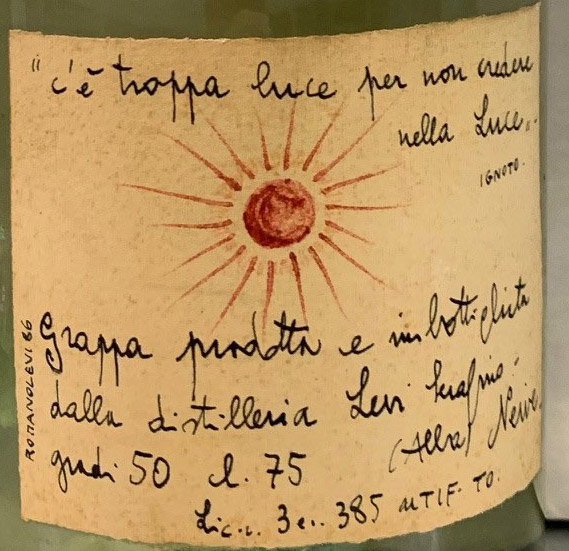 "c'è troppa luce per non credere
nella Luce„.
IGNOTO.
Grappa prodotta e imbottigliata
dalla distilleria Levi Serafino -
(Alba) Neive
gradi 50 cl. 75
Lic.. 3 e.. 385 UTIF. TO.
ROMANOLEVI 86